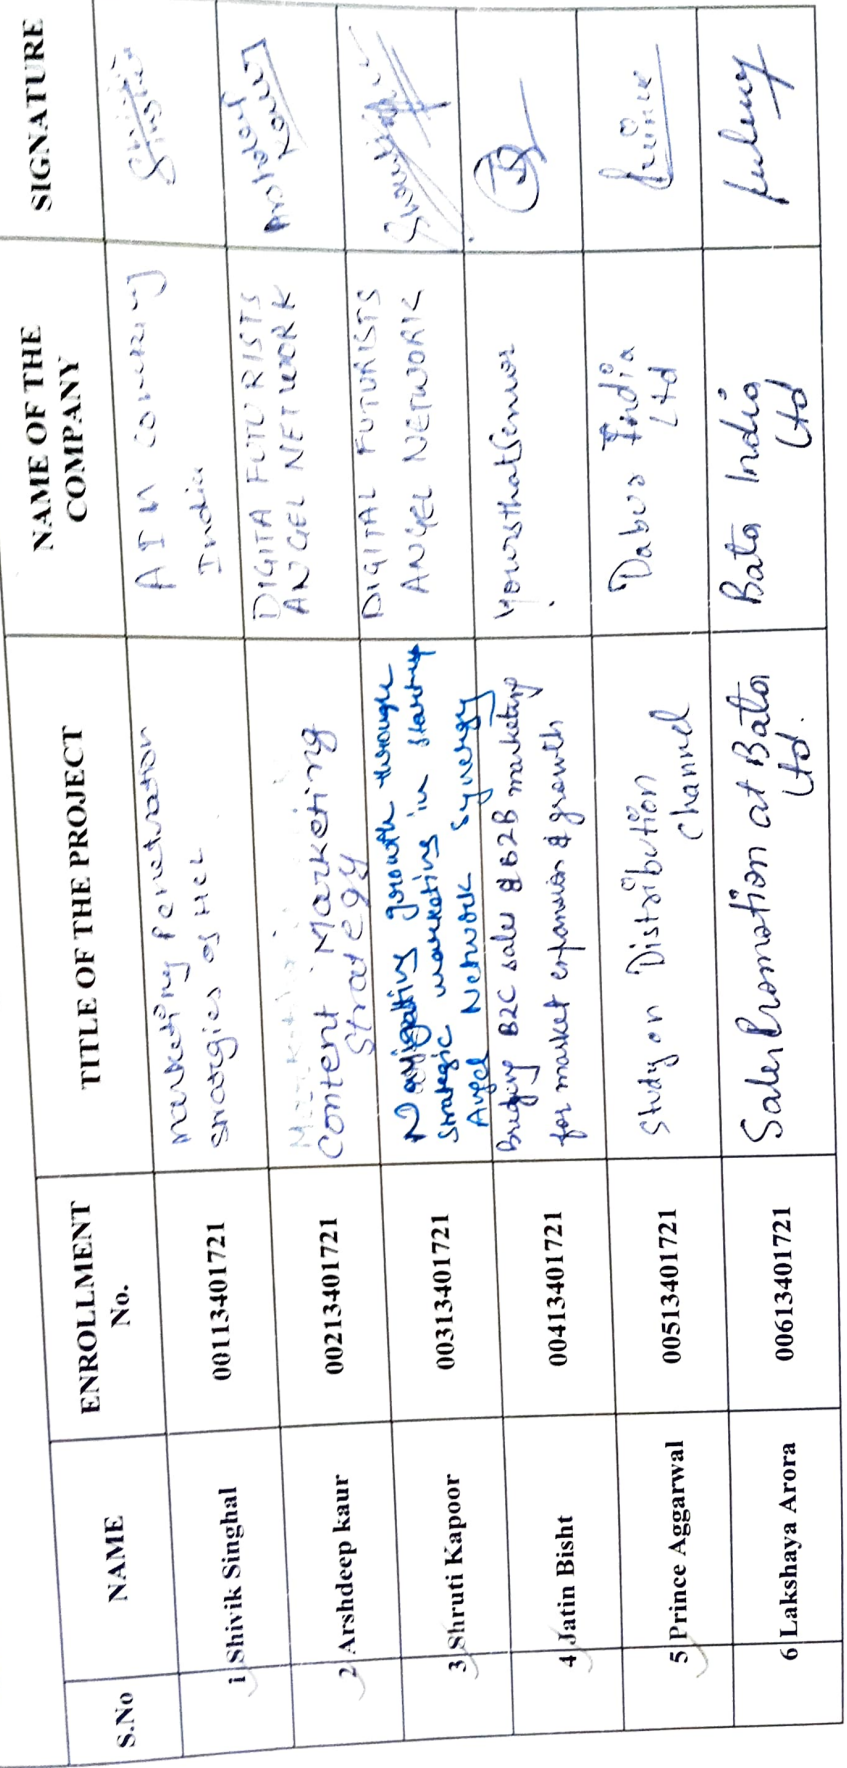 S.No NAME ENROLLMENT No. TITLE OF THE PROJECT NAME OF THE COMPANY SIGNATURE
1 Shivik Singhal 00113401721 Marketing Penetration
stratgies of HCL
India
2 Arshdeep kaur 00213401721 Content Marketing
Strategy
DIGITA FUTURISTS
ANGEL NETWORK
Arshdeep
Kaur
3 Shruti Kapoor 00313401721 Navigating growth through
Strategic marketing in startup
Angel Network Synergy
DIGITAL FUTURISTS
ANGEL NETWORK
4 Jatin Bisht 00413401721 Bridging B2C sales & B2B marketing
for market expansion & growth
YoursthatSenior
5 Prince Aggarwal 00513401721 Study on Distribution
Channel
Dabur India
Ltd
Prince
6 Lakshaya Arora 00613401721 Sales Promotion at Bata
Ltd.
Bata India
Ltd